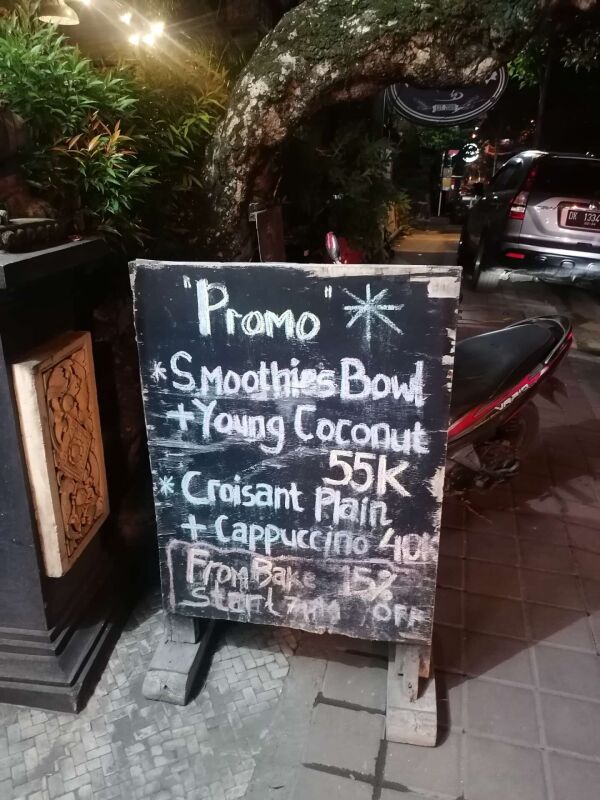 "Promo" *
* Smoothies Bowl
+ Young Coconut
55K
* Croisant Plain
+ Cappuccino 40K
From Bake 15%
Start 7am OFF
DK 1334
VARIO